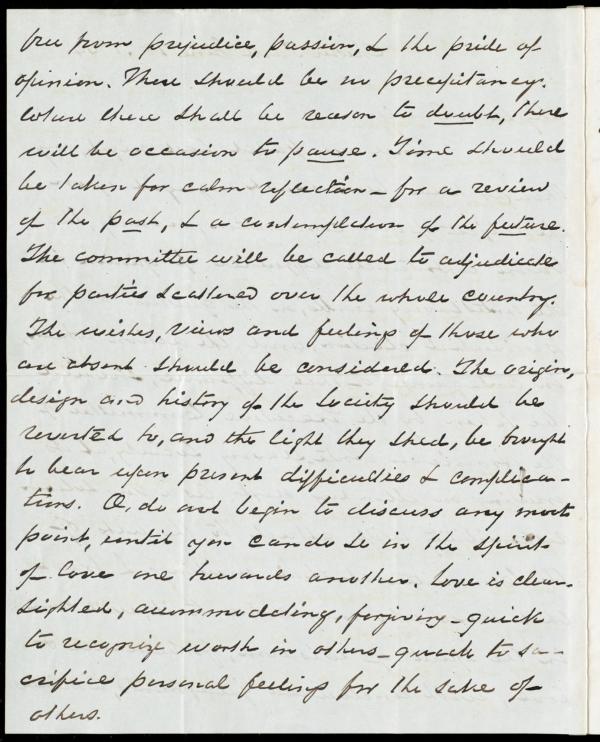 free from prejudice, passion, & the pride of
opinion. There should be no precipitancy.
Where there shall be reason to doubt, there
will be occasion to pause. Time should
be taken for calm reflection – for a review
of the past, & a contemplation of the future.
The committee will be called to adjudicate
for parties scattered over the whole country.
The wishes, views and feelings of those who
are absent should be considered. The origin,
design and history of the Society should be
reverted to, and the light they shed, be brought
to bear upon present difficulties & complica-
tions. O, do not begin to discuss any moot
point, until you can do so in the spirit
of love one towards another. Love is clear-
sighted, accommodating, forgiving – quick
to recognize worth in others – quick to sa-
crifice personal feelings for the sake of
others.